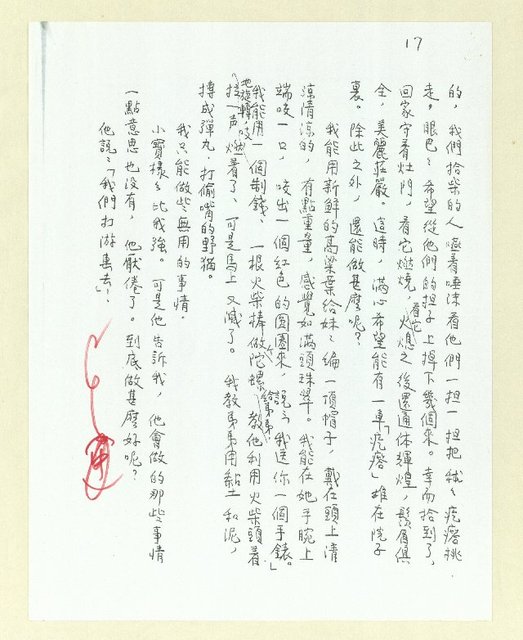 17
的，我們拾柴的人嚥着唾沫看他們一担一担把秫々疙瘩挑
走。眼巴々希望從他們的担子上掉下幾個來。幸而拾到了，
回家守着灶門，看它燃燒，看它火熄之後還通体輝煌，鬚眉俱
全，美麗莊嚴。這時，滿心希望能有一車「疙瘩」堆在院子
裏。除此之外，還能做甚麼呢？
我能用新鮮的高粱葉給妹々編一頂帽子，戴在頭上清
涼清涼的，有點重量，感覺如滿頭珠翠。我能在她手腕上
端咬一口，咬出一個紅色的圓圈來，說：「我送你一個手錶。」
我能用一個制錢、一根火柴棒做陀螺給弟弟，教他利用火柴頭着
地旋轉，咬
拉一声燃着了，可是馬上又滅了。我教弟弟用黏土和泥，
摶成彈丸，打偷嘴的野貓。
我只能做些無用的事情。
小寶樣々比我強。可是他告訴我，他會做的那些事情
一點意思也沒有，他厭倦了。到底做甚麼好呢？
他說：「我們打游擊去！」